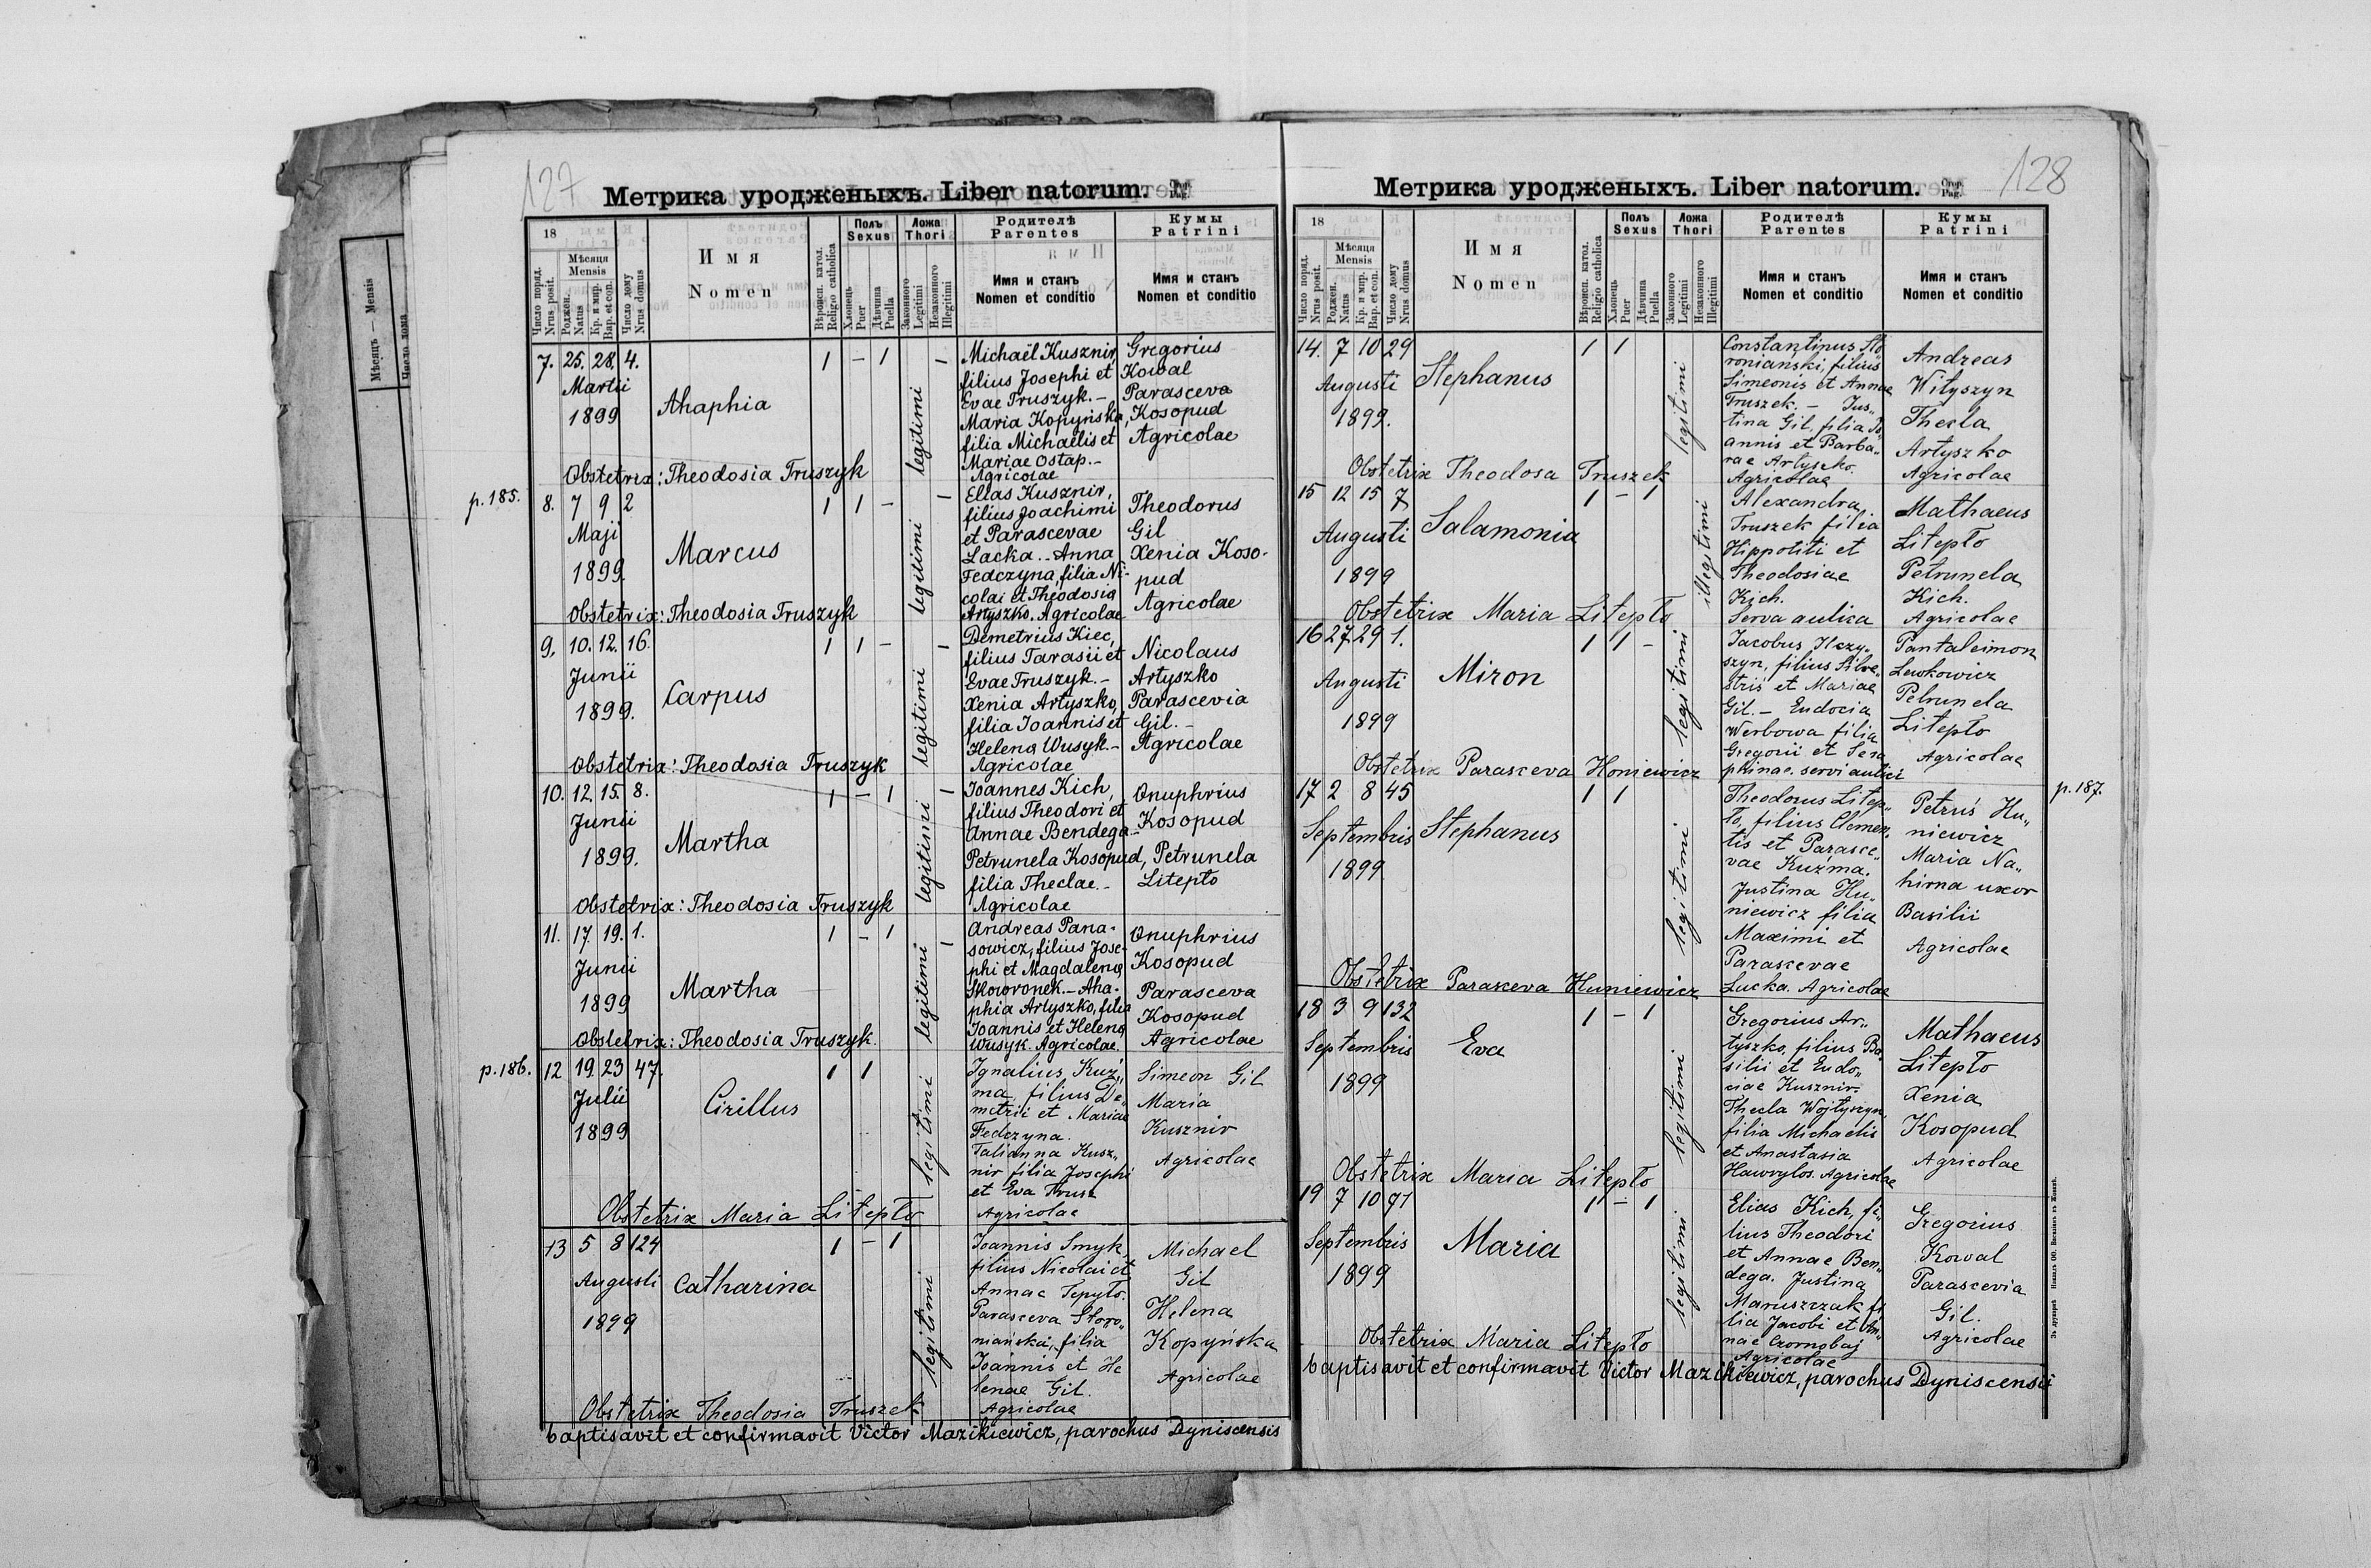 127
Метрика уродженыхъ. Liber natorum.
18
Число поряд.
Nrus posit.
Мѣсяця
Mensis
Роджен.
Natus
Кр. и мир.
Bap. et con.
Число дому
Nrus domus
Имя
Nomen
Вѣроисп. катол.
Religio catholica
Полъ
Sexus
Хлопець
Puer
Дѣвчина
Puella
Ложа
Thori
Законного
Legitimi
Незаконного
Illegitimi
Родителѣ
Parentes
Имя и станъ
Nomen et conditio
Кумы
Patrini
Имя и станъ
Nomen et conditio
7. 25. 28. 4.
Martii
1899
Ahaphia
1 - 1
legitimi
Michaël Kusznir,
filius Josephi et
Evae Truszyk. -
Maria Kopyńska,
filia Michaëlis et
Mariae Ostap. -
Agricolae
Gregorius
Kowal
Parasceva
Kosopud
Agricolae
Obstetrix: Theodosia Truszyk
p. 185.
8. 7 9 2
Maji
1899
Marcus
1 1 -
legitimi
Elias Kusznir,
filius Joachimi
et Parascevae
Lacka. - Anna
Fedczyna, filia Ni-
colai et Theodosia
Artyszko. Agricolae
Theodorus
Gil
Xenia Koso-
pud
Agricolae
Obstetrix: Theodosia Truszyk
9. 10. 12. 16.
Junii
1899.
Carpus
1 1 -
legitimi
Demetrius Kiec,
filius Tarasii et
Evae Truszyk. -
Xenia Artyszko,
filia Joannis et
Helena Wusyk. -
Agricolae
Nicolaus
Artyszko
Parascevia
Gil. -
Agricolae
Obstetrix: Theodosia Truszyk
10. 12. 15. 8.
Junii
1899.
Martha
1 - 1
legitimi
Joannes Kich,
filius Theodori et
Annae Bendega -
Petrunela Kosopud,
filia Theclae. -
Agricolae
Onuphrius
Kosopud
Petrunela
Litepło
Obstetrix: Theodosia Truszyk
11. 17. 19. 1.
Junii
1899
Martha
1 - 1
legitimi
Andreas Pana-
sowicz, filius Jose-
phi et Magdalena
Skowronek. - Aha-
phia Artyszko, filia
Joannis et Helena
Wusyk. Agricolae.
Onuphrius
Kosopud
Parasceva
Kosopud
Agricolae
Obstetrix: Theodosia Truszyk.
p. 186.
12 19. 23 47.
Julii
1899
Cirillus
1 1
legitimi
Ignatius Kuź„
ma, filius De„
metrii et Mariae
Fedczyna.
Tatianna Kusz„
nir filia Josephi
et Eva Trusz
Agricolae
Simeon Gil
Maria
Kusznir
Agricolae
Obstetrix Maria Litepło
13 5 8 124
Augusti
1899
Catharina
1 - 1
legitimi
Joannis Smyk,
filius Nicolai et
Annae Tepyło.
Parasceva Storo„
niańska, filia
Joannis et He
lenae Gil.
Agricolae
Michael
Gil
Helena
Kopyńska
Agricolae
Obstetrix Theodosia Truszek
baptisavit et confirmavit Victor Mazikiewicz, parochus Dyniscensis
128
Метрика уродженыхъ. Liber natorum.
18
Число поряд.
Nrus posit.
Мѣсяця
Mensis
Роджен.
Natus
Кр. и мир.
Bap. et con.
Число дому
Nrus domus
Имя
Nomen
Вѣроисп. катол.
Religio catholica
Полъ
Sexus
Хлопець
Puer
Дѣвчина
Puella
Ложа
Thori
Законного
Legitimi
Незаконного
Illegitimi
Родителѣ
Parentes
Имя и станъ
Nomen et conditio
Кумы
Patrini
Имя и станъ
Nomen et conditio
14. 7 10 29
Augusti
1899.
Stephanus
1 1
legitimi
Constantinus Sto„
roniański, filius
Simeonis et Annae
Truszek. - Jus„
tina Gil, filia Jo„
annis et Barba„
rae Artyszko.
Agricolae
Andreas
Wityszyn
Thecla
Artyszko
Agricolae
Obstetrix Theodosa Truszek
15 12 15 7
Augusti
1899
Salamonia
1 - 1
illegitimi
Alexandra
Truszek filia
Hippoliti et
Theodosiae
Kich.
Serva aulica
Mathaeus
Litepło
Petrunela
Kich.
Agricolae
Obstetrix Maria Litepło
16 27 29 1.
Augusti
1899
Miron
1 1 -
legitimi
Jacobus Ilczy„
szyn, filius Silve„
stris et Mariae
Gil. - Eudocia
Werbowa filia
Gregorii et Sera
phinae. servi aulici
Pantaleimon
Lewkowicz
Petrunela
Litepło
Agricolae
Obstetrix Parasceva Honiewicz
p. 187.
17 2 8 45
Septembris
1899
Stephanus
1 1
legitimi
Theodorus Litep„
ło, filius Clemen„
tis et Parasce„
vae Kuźma.
Justina Hu„
niewicz filia
Maximi et
Parascevae
Lucka. Agricolae
Petruś Hu„
niewicz
Maria Na„
hirna uxor
Basilii
Agricolae
Obstetrix Parasceva Huniewicz
18 3 9 132
Septembris
1899
Eva
1 - 1
legitimi
Gregorius Ar„
tyszko, filius Ba„
silii et Eudo„
ciae Kusznir.
Thecla Wojtyszyn,
filia Michaelis
et Anastasia
Hawrylos. Agricolae
Mathaeus
Litepło
Xenia
Kosopud
Agricolae
Obstetrix Maria Litepło
19 7 10 97
Septembris
1899
Maria
1 - 1
legitimi
Elias Kich, fi„
lius Theodori
et Annae Ben„
dega. Justina
Maruszczak fi
lia Jacobi et An„
nae Czornobaj
Agricolae
Gregorius
Kowal
Parascevia
Gil.
Agricolae
Obstetrix Maria Litepło
baptisavit et confirmavit Victor Mazikiewicz, parochus Dyniscensis
Мѣсяць — Mensis
Число дома